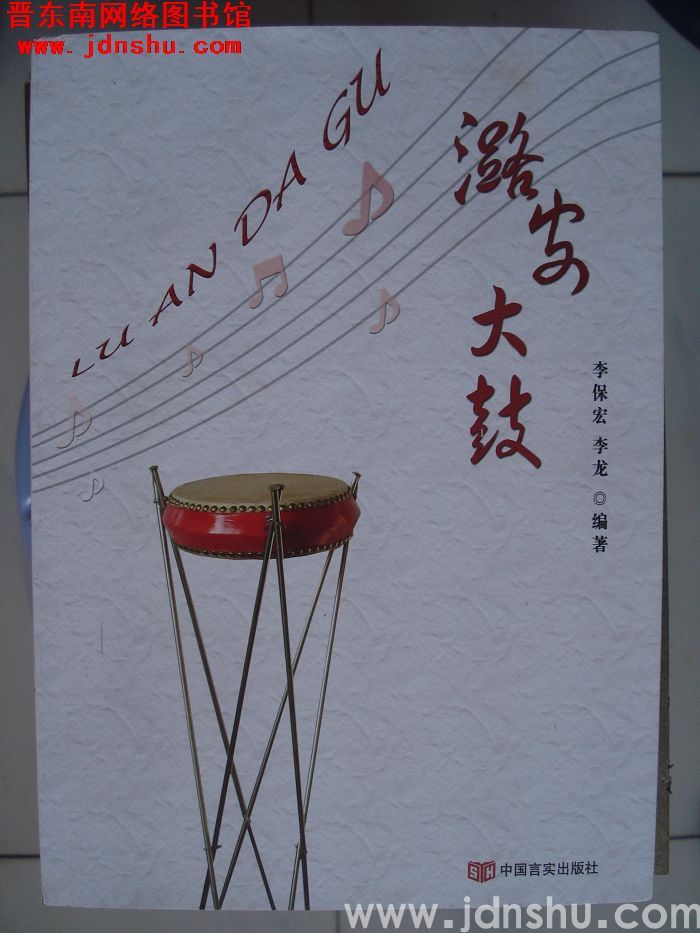 晋东南网络图书馆
www.jdnshu.com
LU AN DA GU
潞安
大鼓
李保宏 李龙 ◎ 编著
中国言实出版社
www.jdnshu.com